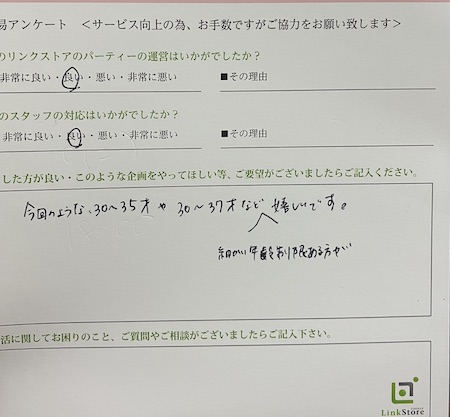 易アンケート ＜サービス向上の為、お手数ですがご協力をお願い致します＞
のリンクストアのパーティーの運営はいかがでしたか？
非常に良い・良い・悪い・非常に悪い ■その理由
のスタッフの対応はいかがでしたか？
非常に良い・良い・悪い・非常に悪い ■その理由
した方が良い・このような企画をやってほしい等、ご要望がございましたらご記入ください。
今回のような、30〜35才や30〜37才など嬉しいです。
細かい年齢制限ある方が
活に関してお困りのこと、ご質問やご相談がございましたらご記入下さい。
LinkStore